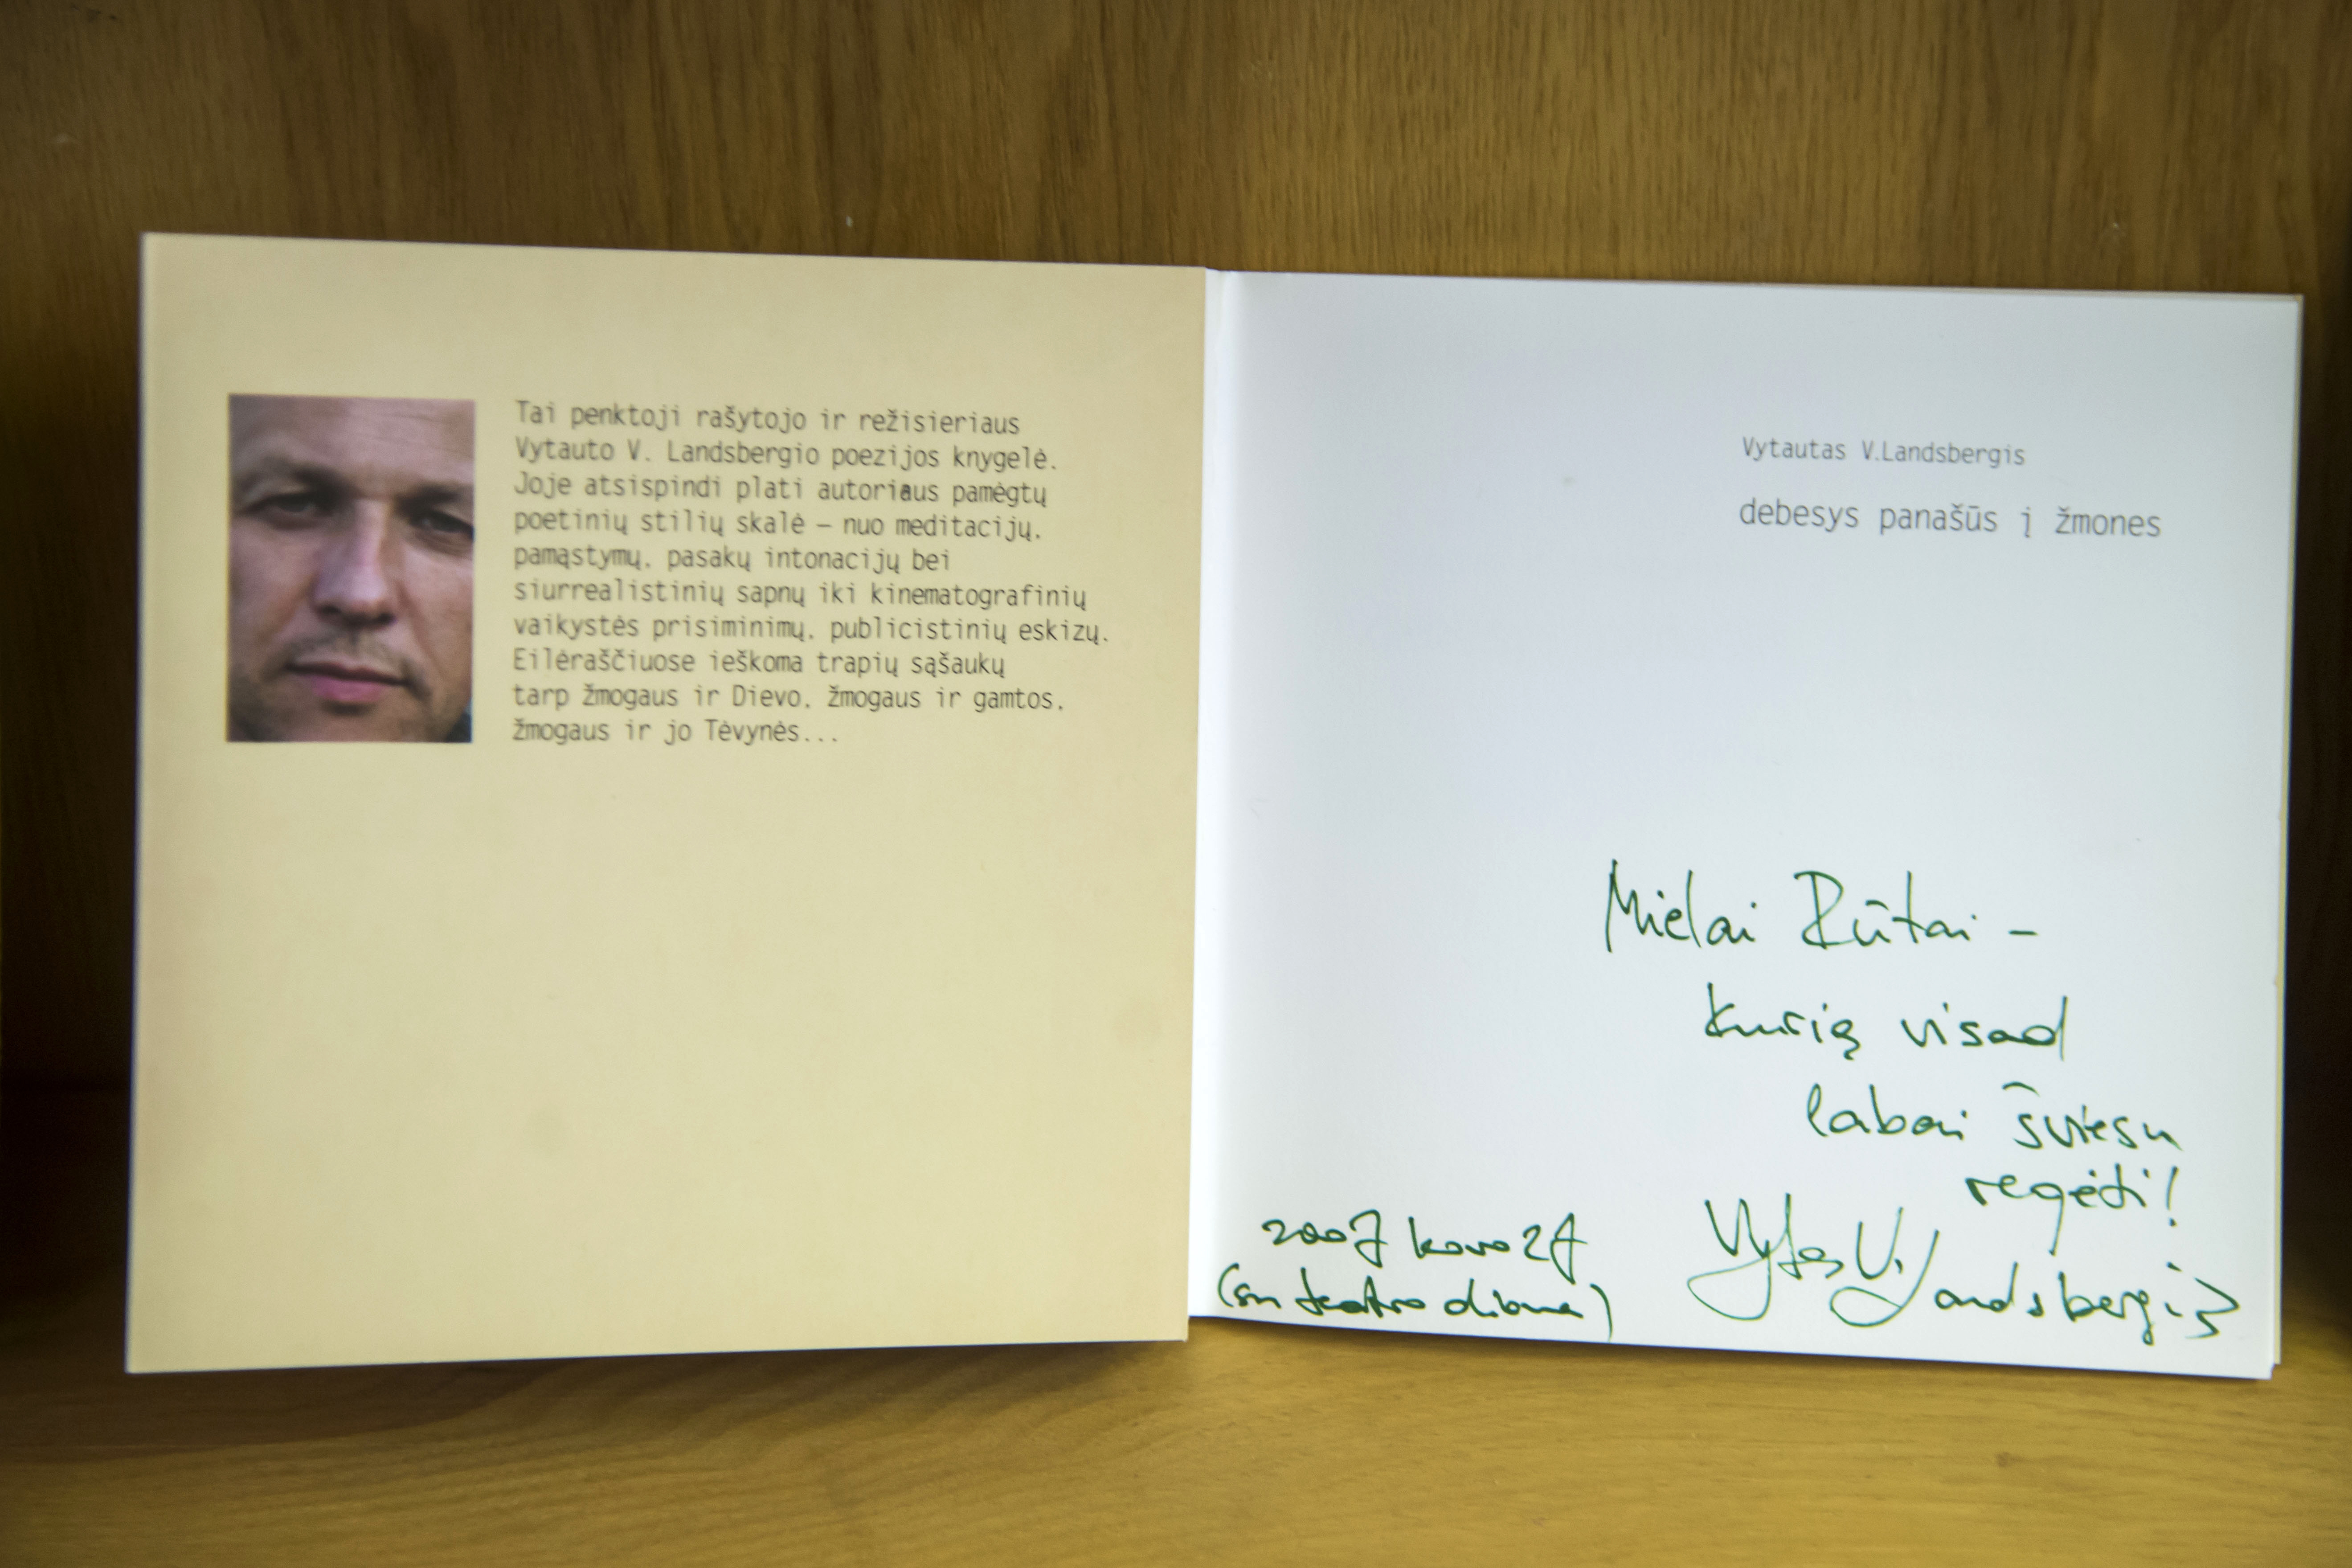 Tai penktoji rašytojo ir režisieriaus
Vytauto V. Landsbergio poezijos knygelė.
Joje atsispindi plati autoriaus pamėgtų
poetinių stilių skalė – nuo meditacijų,
pamąstymų, pasakų intonacijų bei
siurrealistinių sapnų iki kinematografinių
vaikystės prisiminimų, publicistinių eskizų.
Eilėraščiuose ieškoma trapių sąšaukų
tarp žmogaus ir Dievo, žmogaus ir gamtos,
žmogaus ir jo Tėvynės...
Vytautas V.Landsbergis
debesys panašūs į žmones
Mielai Rūtai –
kurią visad
labai šviesu
regėti!
2007 kovo 27
(su teatro diena)
Vytas V. Landsbergis